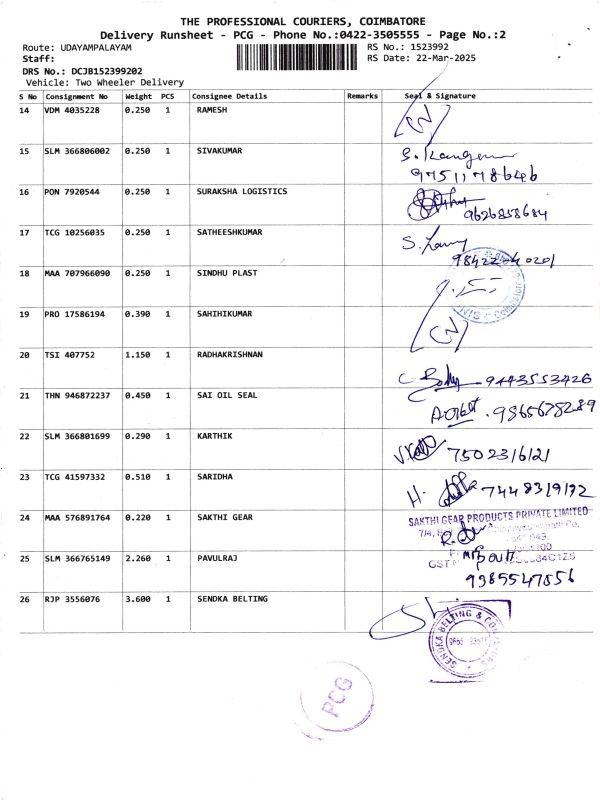 THE PROFESSIONAL COURIERS, COIMBATORE
Delivery Runsheet - PCG - Phone No.:0422-3505555 - Page No.:2
Route: UDAYAMPALAYAM
RS No.: 1523992
Staff:
RS Date: 22-Mar-2025
DRS No.: DCJB152399202
Vehicle: Two Wheeler Delivery
S No Consignment No Weight PCS Consignee Details Remarks Seal & Signature
14 VDM 4035228 0.250 1 RAMESH
15 SLM 366806002 0.250 1 SIVAKUMAR
16 PON 7920544 0.250 1 SURAKSHA LOGISTICS
9626858684
17 TCG 10256035 0.250 1 SATHEESHKUMAR
18 MAA 707966090 0.250 1 SINDHU PLAST
19 PRO 17586194 0.390 1 SAHIHIKUMAR
20 TSI 407752 1.150 1 RADHAKRISHNAN
9443553426
21 THN 946872237 0.450 1 SAI OIL SEAL
9865678289
22 SLM 366801699 0.290 1 KARTHIK
23 TCG 41597332 0.510 1 SARIDHA
24 MAA 576891764 0.220 1 SAKTHI GEAR
SAKTHI GEAR PRODUCTS PRIVATE LIMITED
25 SLM 366765149 2.260 1 PAVULRAJ
9385547856
26 RJP 3556076 3.600 1 SENDKA BELTING
PCG